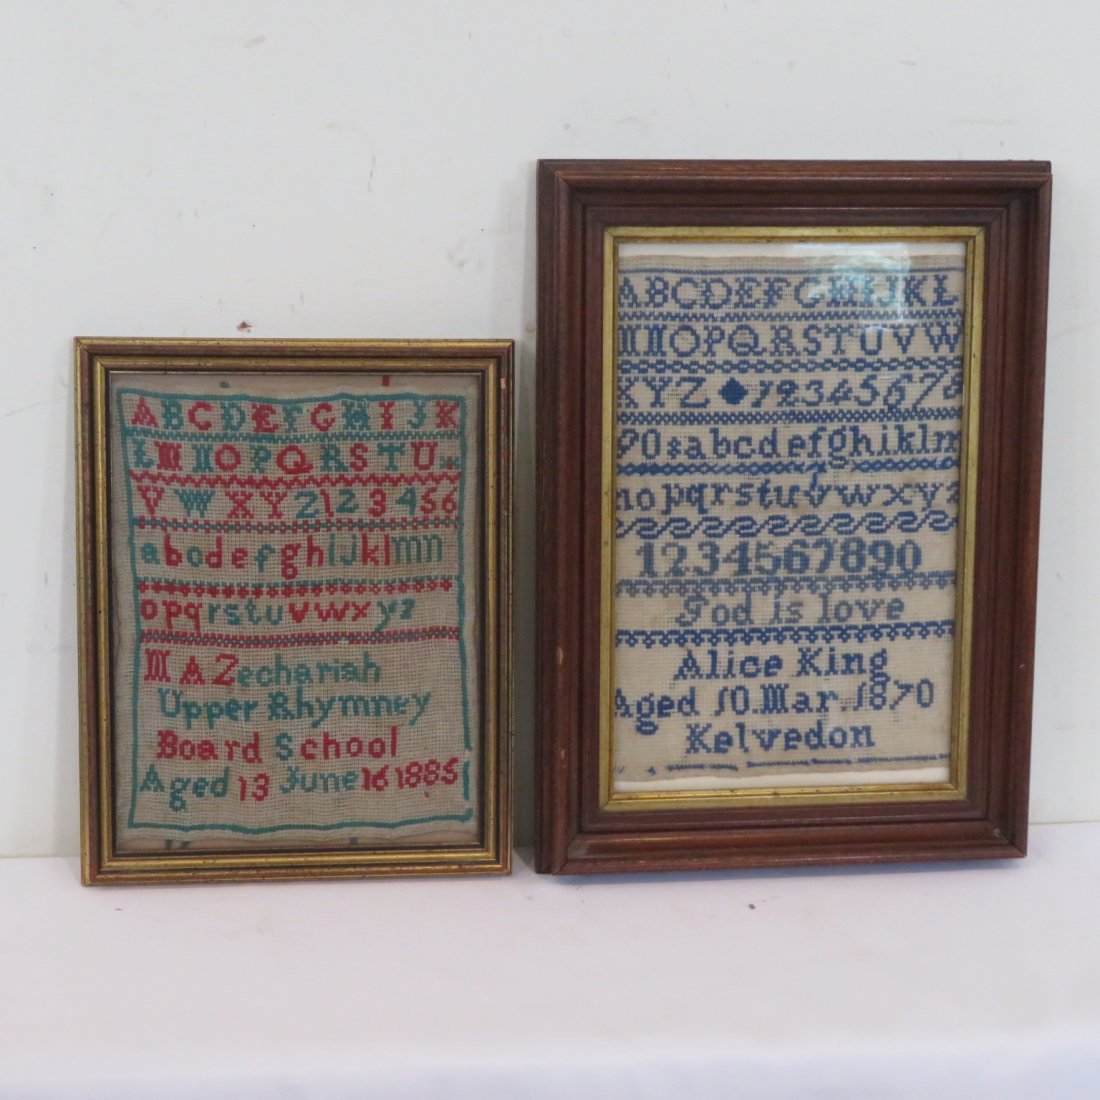 ABCDEFGHIJK
LMNOPQRSTU
VWXYZ123456
abcdefghijklmn
opqrstuvwxyz
M A Zechariah
Upper Rhymney
Board School
Aged 13 June 16 1885
ABCDEFGHIJKL
MNOPQRSTUVW
XYZ 12345678
90 abcdefghiklm
nopqrstuvwxyz
1234567890
God is love
Alice King
Aged 10. Mar. 1870
Kelvedon